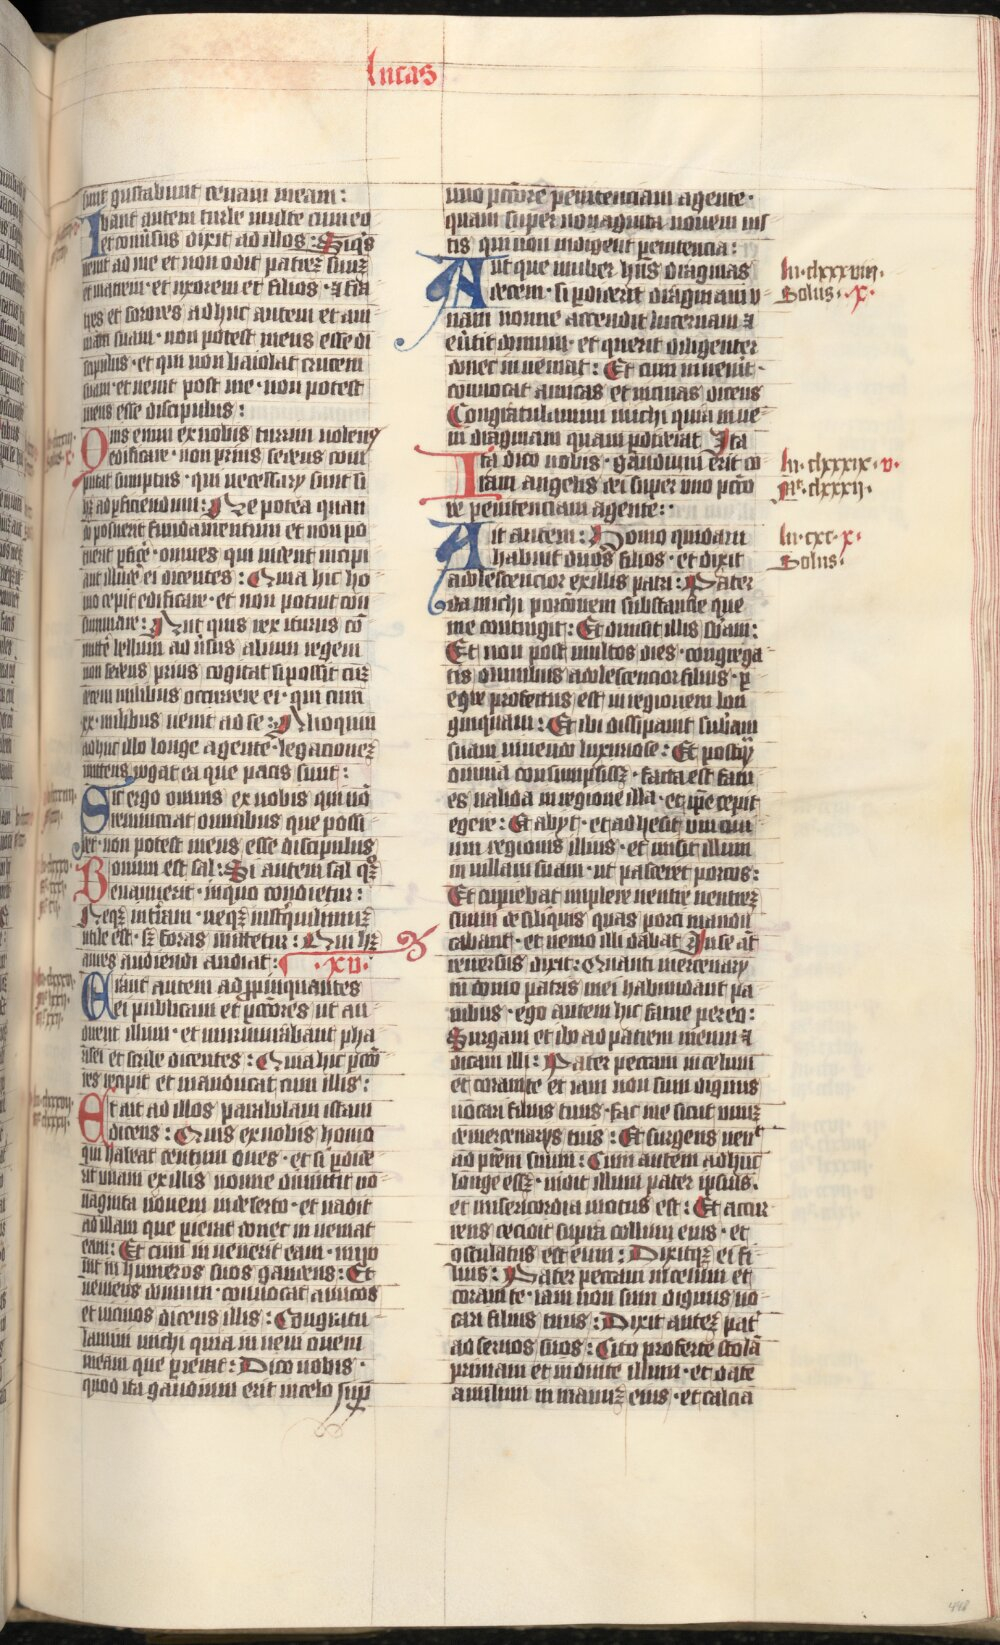 lucas
sunt gustabunt cenam meam :
Ibant autem turbe multe cum eo
et conuersus dixit ad illos : Siqͥs
uenit ad me et non odit patreꝫ suuꝫ
et matrem · et uxorem et filios · ⁊ fra
tres et sorores adhuc autem et ani
mam suam · non potest meus esse di
scipulus · et qui non baiolat crucem
suam · et uenit post me · non potest
meus esse discipulus :
Quis enim ex nobis turrim uolens
edificare · non prius sedens com
putat sumptus · qui necessarij sunt si
hꝫ ad perficiendum : Ne postea quam
do posuerit fundamentum et non po
tuerit perficere · omnes qui uident incipi
ant illudere ei dicentes : Quia hic ho
mo cepit edificare · et non potuit con
summare : Aut quis rex iturus co
mittere bellum aduersus alium regem
non sedens prius cogitat si possit cuꝫ
decem milibus occurrere ei · qui cum
xx · milibus uenit ad se : Alioquin
adhuc illo longe agente · legacioneꝫ
mittens rogat ea que pacis sunt :
Sic ergo omnis ex nobis qui nō
renunciat omnibus que possi
det · non potest meus esse discipulus
Bonum est sal : Si autem sal qͦꝫ
euanuerit · in quo condietur :
Neqꝫ in terram · neqꝫ in sterquiliniuꝫ
utile est · sꝫ foras mittetur : Qui hꝫ
aures audiendi audiat : · xv ·
Erant autem ad propinquantes
ei publicani et peccatores ut au
dirent illum · et murmurabant pha
risei et scribe dicentes : Quia hic pecco
res recipit et manducat cum illis :
Et ait ad illos parabolam istam
dicens : Quis ex nobis homo
qui habeat centum oues · et si perdide
rit unam ex illis nonne dimittit no
naginta nouem in deserto · et uadit
ad illam que perierat donec inueniat
eam : Et cum inuenerit eam · impo
nit in humeros suos gaudens : Et
ueniens domum · conuocat amicos
et uicinos dicens illis : Congratu
lamini michi quia inueni ouem
meam que perierat : Dico uobis ·
quod ita gaudium erit in celo sup
uno pctore penitenciam agente ·
quam super nonaginta nouem ius
tis qui non indigent penitencia :
Aut que mulier hñs dragmas
decem · si perdiderit dragmam v
nam nonne accendit lucernam ⁊
euertit domum · et querit diligenter
donec inueniat : Et cum inuenerit ·
conuocat amicas et uicinas dicens
Congratulamini michi quia inue
ni dragmam quam perdideram Ita
Ita dico uobis · gaudium erit co
ram angelis dei super uno pctō
re penitenciam agente :
Ait autem : Homo quidam
habuit duos filios · et dixit
adolescencior ex illis patri : Pater
da michi porcionem substancie que
me contingit : Et diuisit illis sbam :
Et non post multos dies · congrega
tis omnibus adolescencior filius · p
egre profectus est in regionem lon
ginquam : Et ibi dissipauit subam
suam uiuendo luxuriose : Et postqͣ
omnia consumpsissꝫ · facta est fam
es ualida in regione illa · et ipe cepit
egere : Et abijt · et adhesit uni ciui
um regionis illius · et misit illum
in uillam suam · ut pasceret porcos :
Et cupiebat implere uentre uentreꝫ
suum de siliquis quas porci mandu
cabant · et nemo illi dabat In se at
reuersus dixit : Quanti mercenarij
in domo patris mei habundant pa
nibus · ego autem hic fame pereo :
Surgam et ibo ad patrem meum ⁊
dicam illi : Pater peccaui in celum
et coram te et iam non sum dignus
uocari filius tuus · fac me sicut unuꝫ
de mercenarijs tuis : Et surgens uenit
ad prem suum : Cum autem adhuc
longe essꝫ · uidit illum pater ipsius ·
et misericordia motus est : Et accur
rens cecidit supra collum eius · et
osculatus est eum : Dixitqꝫ ei fi
lius : Pater peccaui in celum et
coram te · iam non sum dignus uo
cari filius tuus : Dixit auteꝫ pat
ad seruos suos : Cito proferte stolā
primam et induite illum · et date
anulum in manuꝫ eius · et calcia
lu · clxxxviij ·
Solus · x ·
lu · clxxxix · v ·
Mt · clxxxij ·
lu · cxc · x ·
Solus ·
448